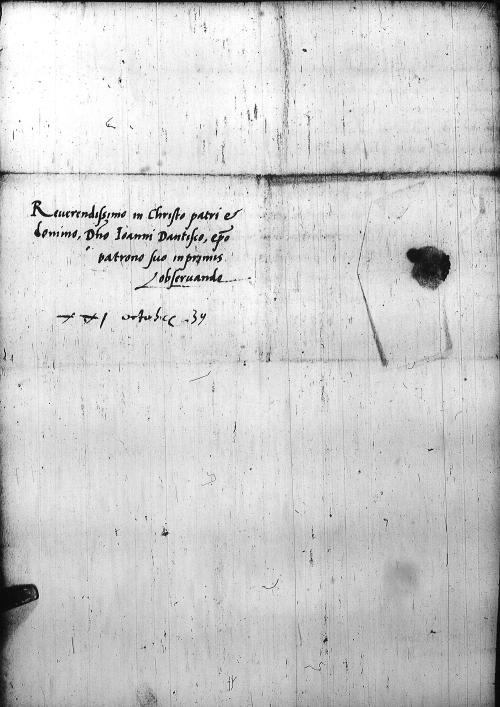 Reuerendissimo in Christo patri et
domino, Dno Ioanni Dantisco, epo
patrono suo inprimis
obseruando
xxi octobris 39